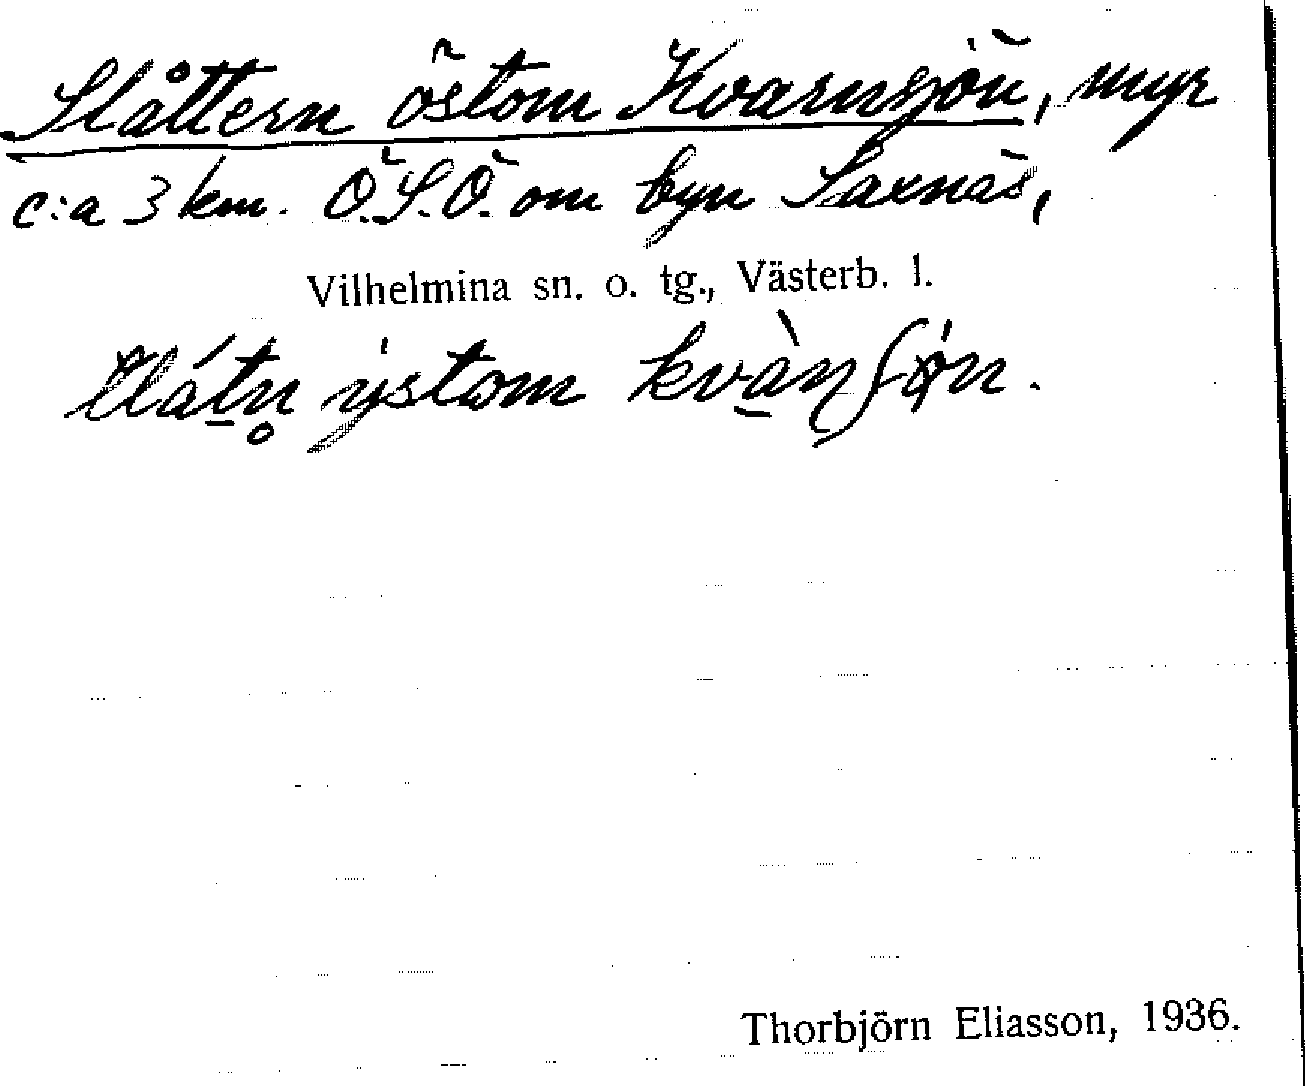 Slåttern östom Kvarnsjön, myr
c:a 3 km. Ö.S.Ö. om byn Saxnäs,
Vilhelmina sn. o. tg., Västerb. l.
Thorbjörn Eliasson, 1936.